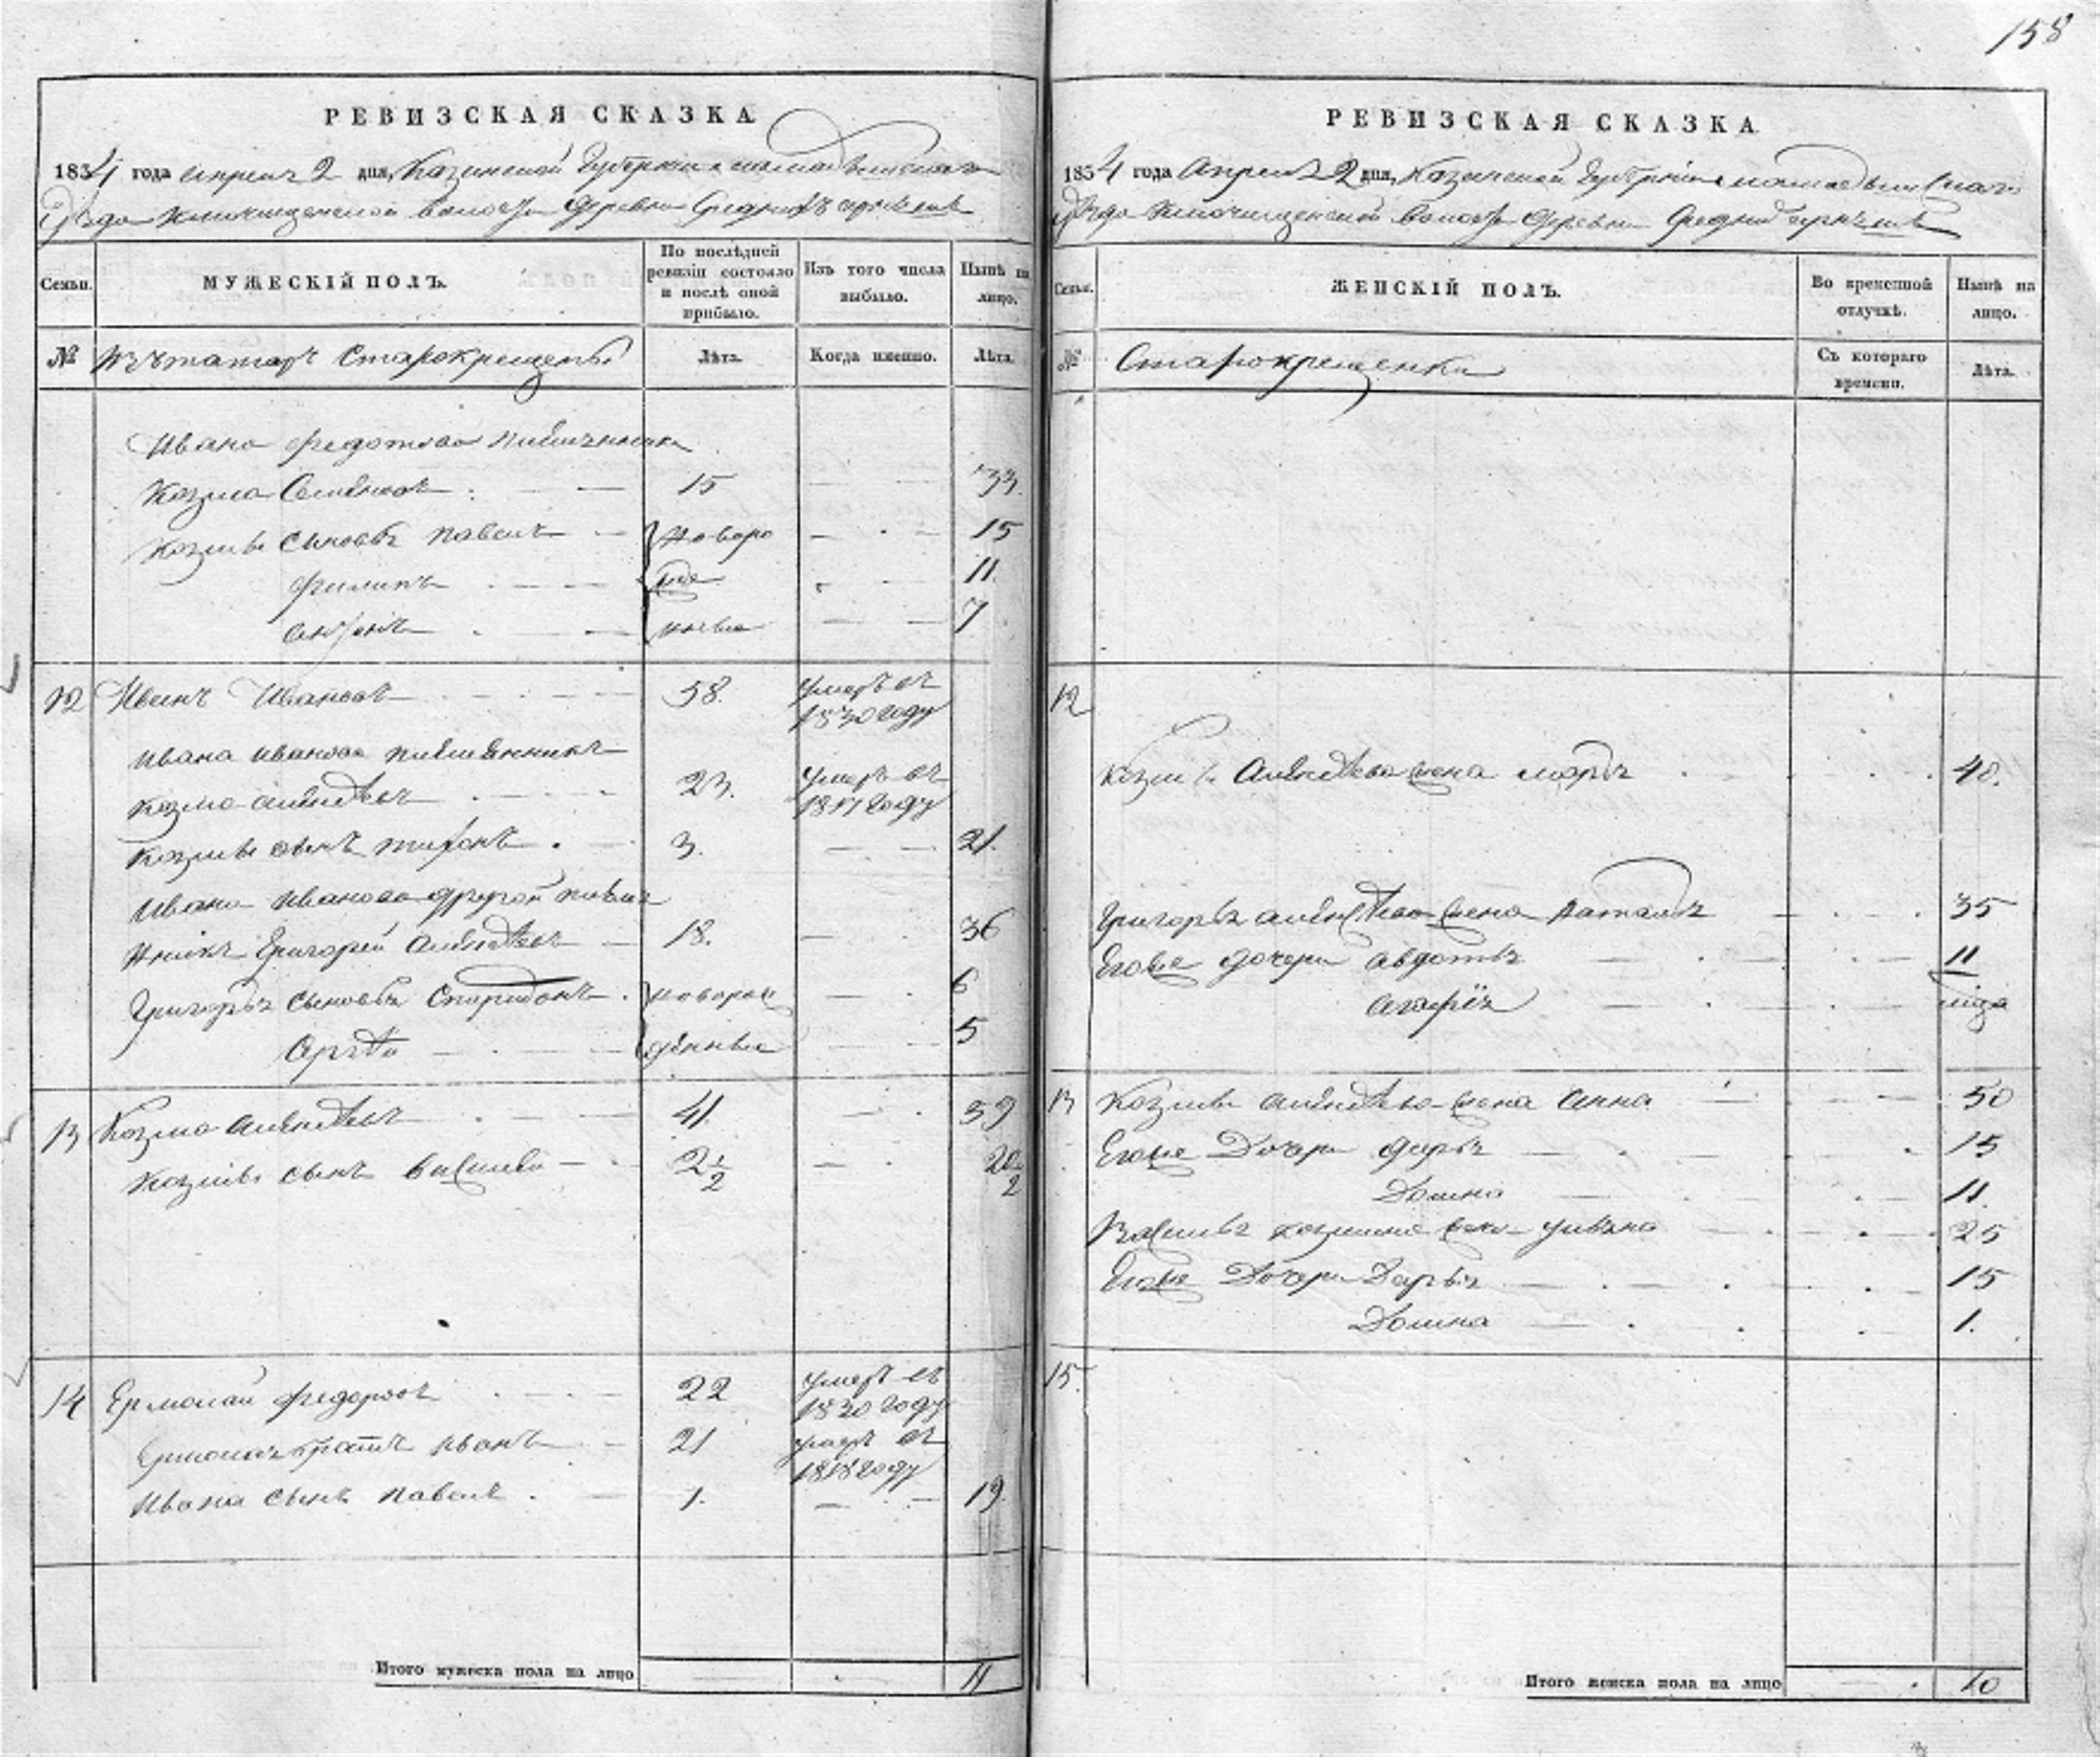 158
РЕВИЗСКАЯ СКАЗКА
1834 года апреля 2 дня, Казанской Губернии
Уезда волости деревни
Семьи.
МУЖЕСКІЙ ПОЛЪ.
По послѣдней ревизіи состояло и послѣ оной прибыло.
Изъ того числа выбыло.
Нынѣ на лицо.
№
Изъ татаръ Старокрещены
Лѣта.
Когда именно.
Лѣта.
Ивана Федотова
Козма 15 33.
Козмы сыновья Павелъ новоро 15
Филипъ жде 11.
Антонъ нные 7
12 Иванъ Ивановъ 58. умеръ въ 1830 году
Ивана Иванова племянникъ
Козма 23. умеръ въ году
Козмы сынъ 3. 21.
Ивана Иванова другой племя
нникъ Григорий 18. 36
Григорья сыновья Спиридонъ новорож 6
денные 5
13 Козма 41. 59
Козмы сынъ Василей 2 1/2 20 1/2
14 Ермолай Федоровъ 22 умеръ въ 1830 году
братъ Иванъ 21 умеръ въ 1818 году
Ивана сынъ Павелъ 1. 19.
Итого мужеска пола на лицо 11
РЕВИЗСКАЯ СКАЗКА
1834 года Апреля 2 дня, Казанской Губернии
Уезда волости деревни
Семьи.
ЖЕНСКІЙ ПОЛЪ.
Во временной отлучкѣ.
Нынѣ на лицо.
№
Старокрещенки
Съ котораго времени.
Лѣта.
12
Козмы жена Марья 40.
Григорья жена Наталья 35
Его же дочери Авдотья 11
года
13 Козмы жена Анна 50
Его же дочери Дарья 15
Домна 11.
Василья жена Ульяна 25
Его же дочери Дарья 15
Домна 1.
15.
Итого женска пола на лицо 10